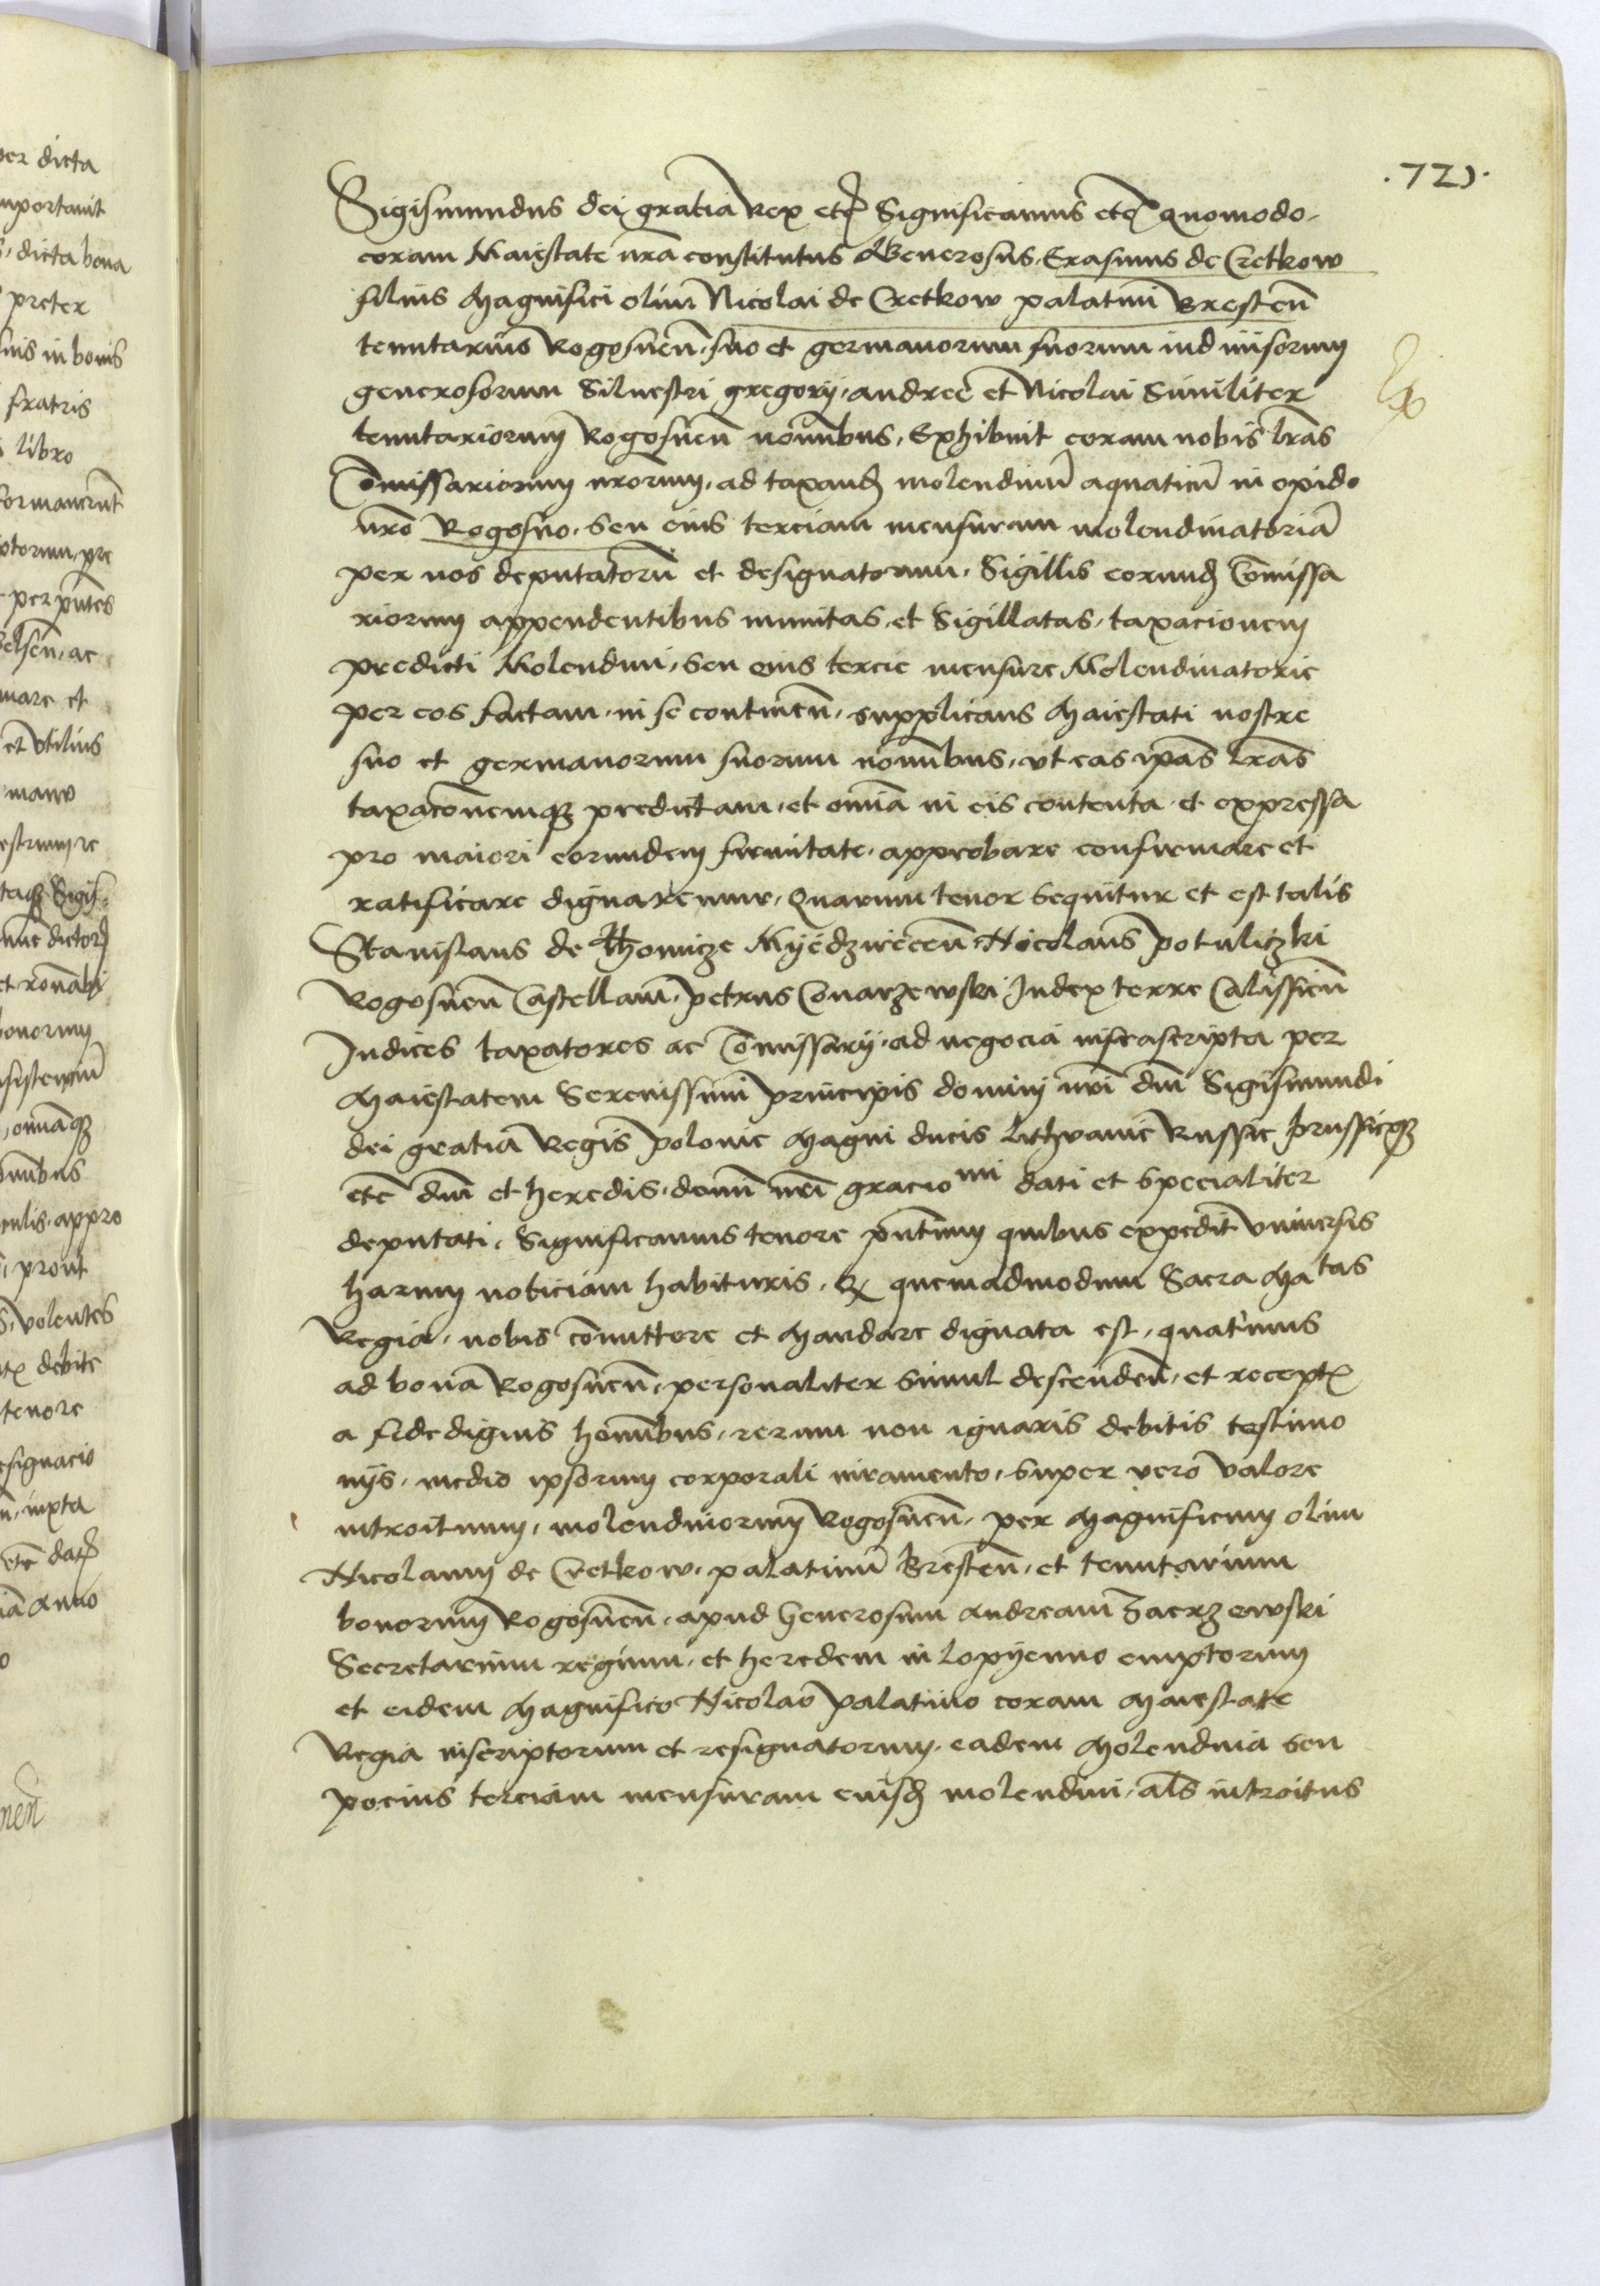 .721.
Sigismundus dei gratia Rex etc̃ Significamus etc̃ quomodo.
coram Maiestate nr̃a constitutus Generosus, Erasmus de Cretkow
filius Magnifici olim Nicolai de Cretkow palatini Bresteñ
tenutarius Rogosneñ, suo et germanorum suorum indiuisorum
generosorum Siluestri gregorij, andree et Nicolai Similiter
tenutariorum Rogosneñ noĩbus, Exhibuit coram nobis lr̃as
Com̃issariorum nr̃orum, ad taxand̃ molendinũ aquaticũ in opido
nr̃o Rogosno, seu eius terciam mensuram molendinatoriã
per nos deputatorũ et designatorum, Sigillis eorund̃ Com̃issa
riorum appendentibus munitas, et Sigillatas, taxacionem
predicti Molendini, seu eius tercie mensure Molendinatorie
per eos factam, in se contineñ, supplicans Maiestati nostre
suo et germanorum suorum noĩbus, vt eas ip̃as lr̃as
taxac̃onemqꝫ predictam, et om̃ia in eis contenta et expressa
pro maiori eorundem firmitate, approbare confirmare et
ratificare dignaremur, Quarum tenor sequitur et est talis
Stanislaus de Thomicze Myedzireceñ, Nicolaus potuliczki
Rogosneñ Castellani, petrus Conarzewski Iudex terre Calissieñ
Iudices taxatores ac Com̃issarij, ad negocia infrascripta per
Maiestatem Serenissimi principis domini nr̃i dñi Sigismundi
dei gratia Regis polonie Magni ducis Lithvanie Russie prussieqꝫ
etc̃ dñi et heredis, domĩ nr̃i gracio mi dati et specialiter
deputati, Significamus tenore pñtium quibus expedit vniuersis
harum noticiam habituris, Qꝫ quemadmodum Sacra Ma tas
Regia, nobis com̃ittere et mandare dignata est, quatinus
ad bona Rogosneñ, personaliter simul descendeñ, et recept̃
a fidedignis hom̃ibus, rerum non ignaris debitis testimo
nijs, medio ipsorum corporali iuramento, super vero valore
introituum, molendinorum Rogosneñ, per Magnificum olim
Nicolaum de Cretkow, palatinũ Bresteñ, et tenutarium
bonorum Rogosneñ, apud Generosum Andream Zaerzewski
Secretarium regium, et heredem in Lopyenno emptorum
et eidem Magnifico Nicolao palatino coram Maiestate
Regia inscriptorum et resignatorum, eadem Molendina seu
pocius terciam mensuram eiusd̃ molendini, al̃s introitus